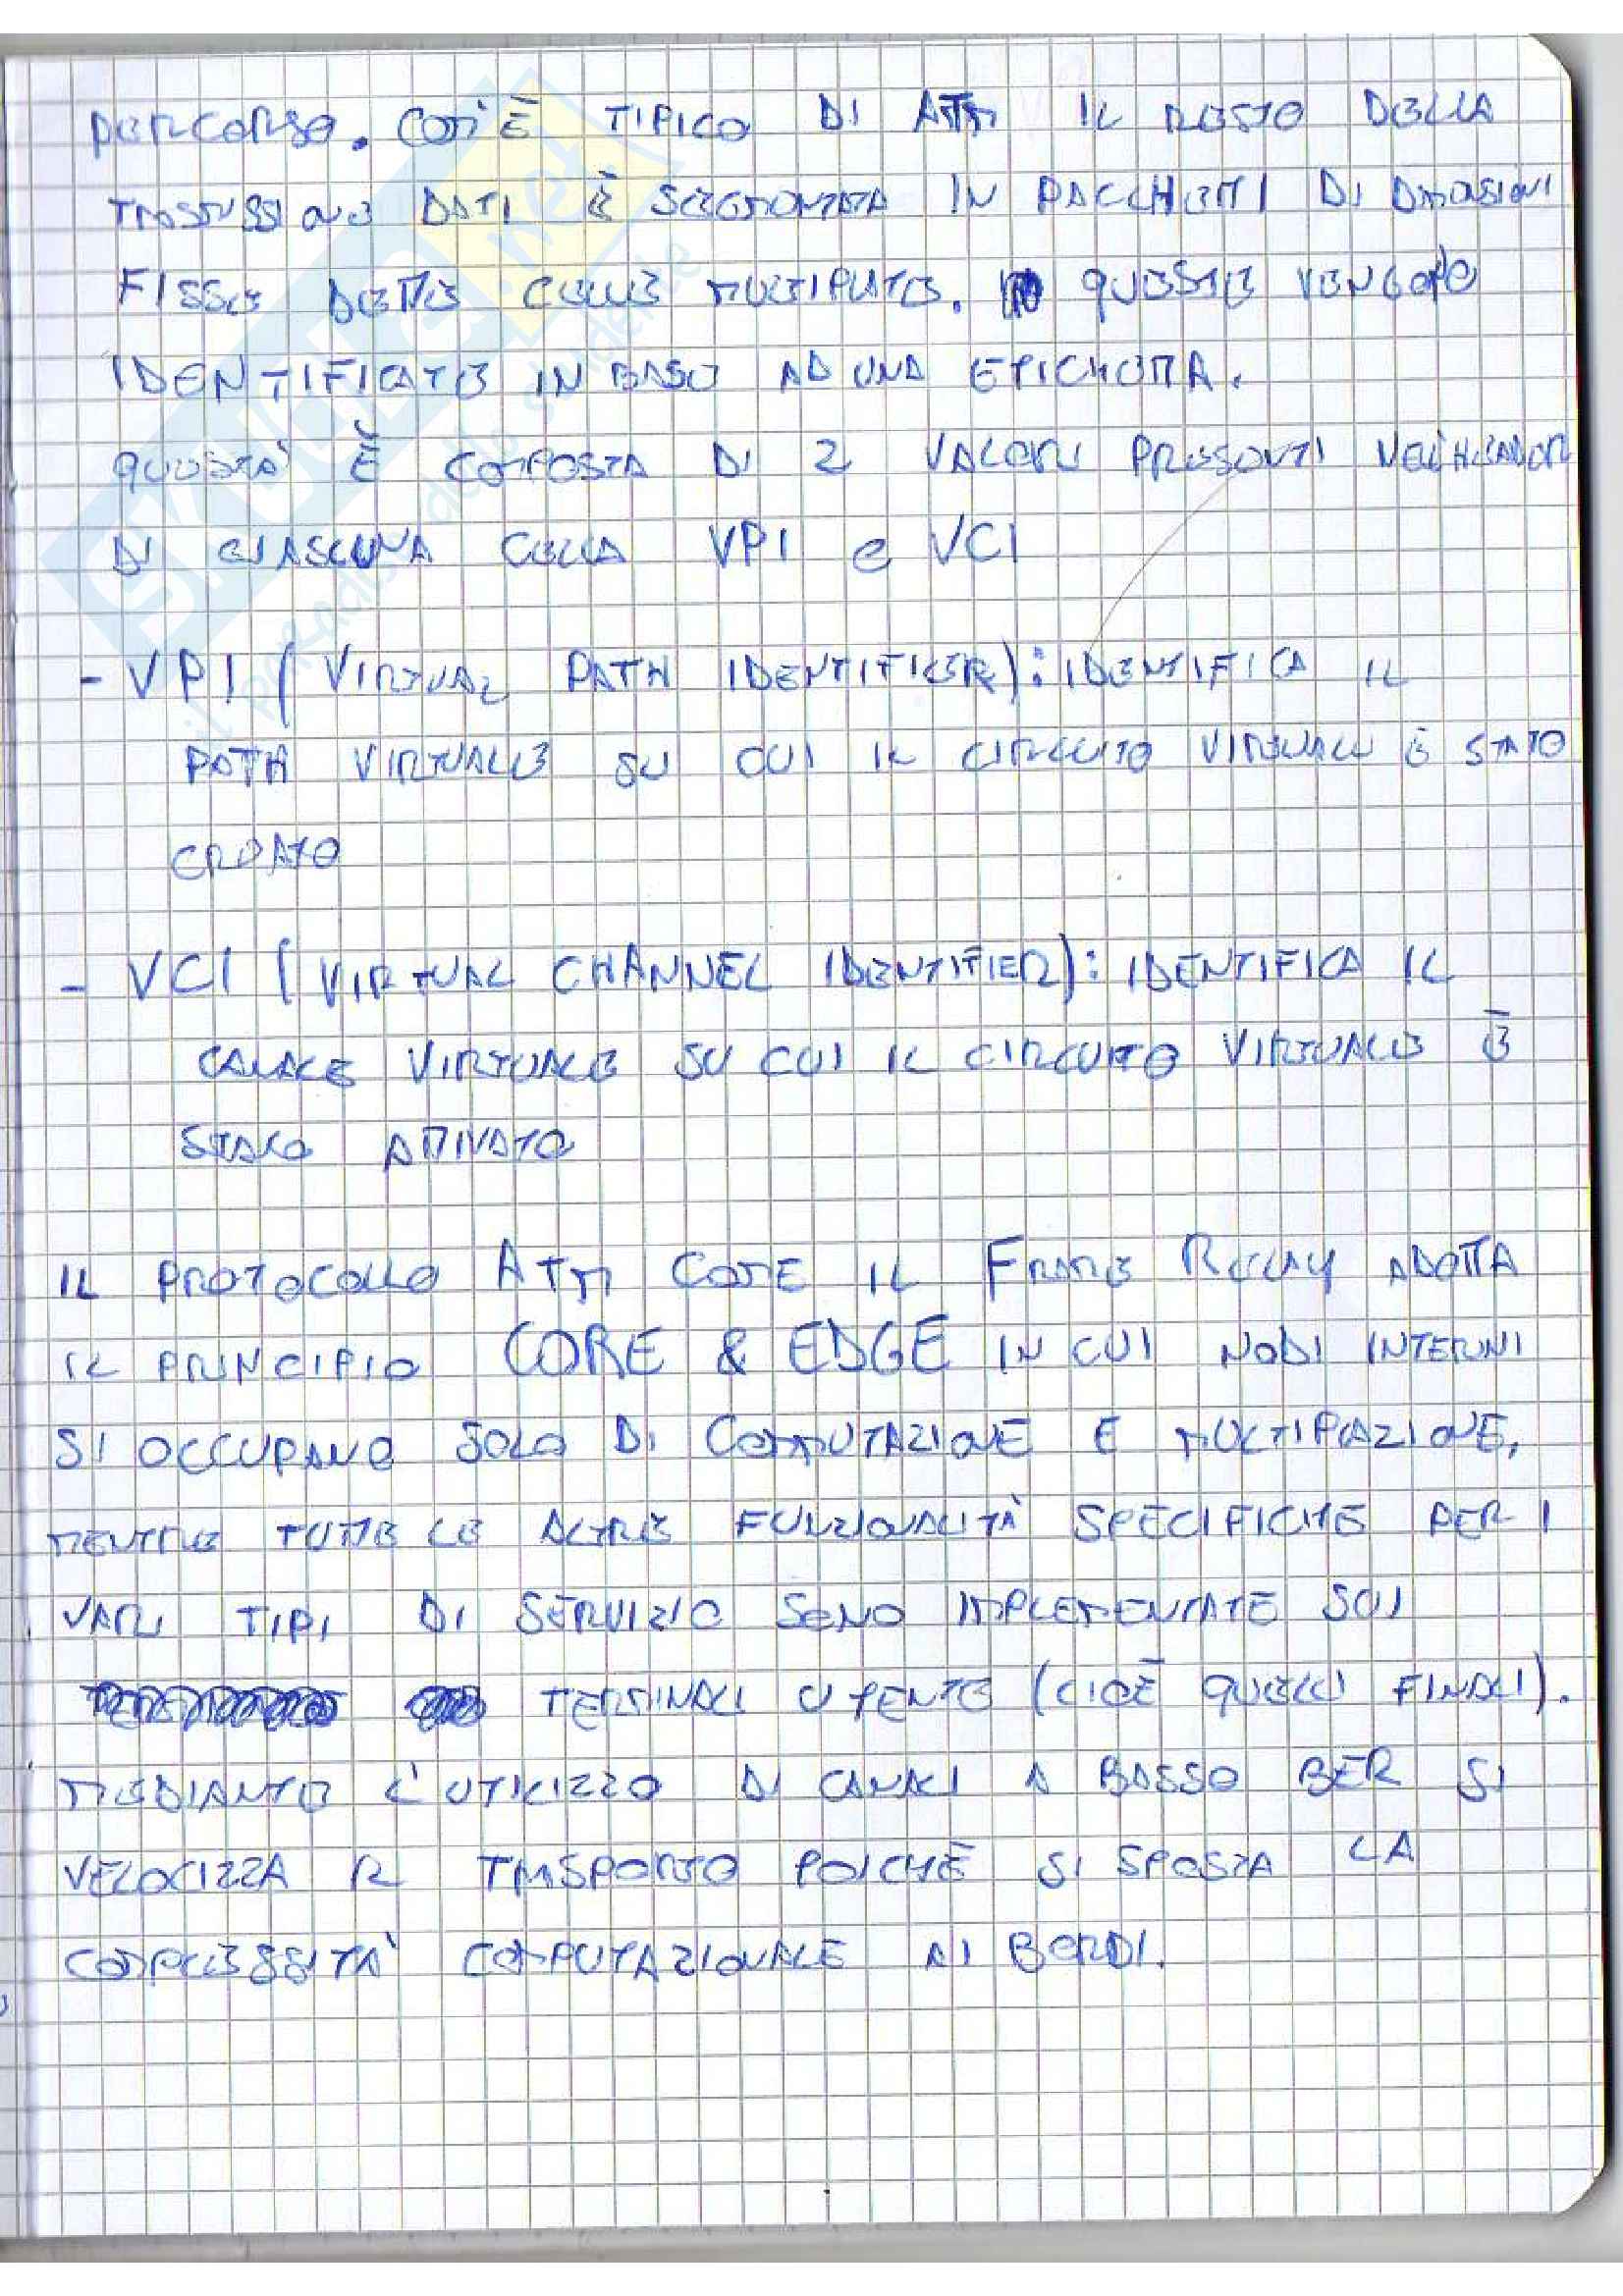 PERCORSO. COM'È TIPICO DI ATM IL RESTO DELLA
TRASMISSIONE DATI È SEGMENTATA IN PACCHETTI DI DIMENSIONI
FISSE DETTE CELLE MULTIPLATE. QUESTE VENGONO
IDENTIFICATE IN BASE AD UNA ETICHETTA.
QUESTA È COMPOSTA DI 2 VALORI PRESENTI NELL'HEADER
DI CIASCUNA CELLA VPI e VCI
- VPI (VIRTUAL PATH IDENTIFIER): IDENTIFICA IL
PATH VIRTUALE SU CUI IL CIRCUITO VIRTUALE È STATO
CREATO
- VCI (VIRTUAL CHANNEL IDENTIFIER): IDENTIFICA IL
CANALE VIRTUALE SU CUI IL CIRCUITO VIRTUALE È
STATO ATTIVATO
IL PROTOCOLLO ATM COME IL FRAME RELAY ADOTTA
IL PRINCIPIO CORE & EDGE IN CUI NODI INTERNI
SI OCCUPANO SOLO DI COMMUTAZIONE E MULTIPLAZIONE,
MENTRE TUTTE LE ALTRE FUNZIONALITÀ SPECIFICHE PER I
VARI TIPI DI SERVIZIO SONO IMPLEMENTATE SUI
TERMINALI UTENTE (CIOÈ QUELLI FINALI).
MEDIANTE L'UTILIZZO DI CANALI A BASSO BER SI
VELOCIZZA IL TRASPORTO POICHÈ SI SPOSTA LA
COMPLESSITÀ COMPUTAZIONALE AI BORDI.
skuola.net
il paradiso dello studente